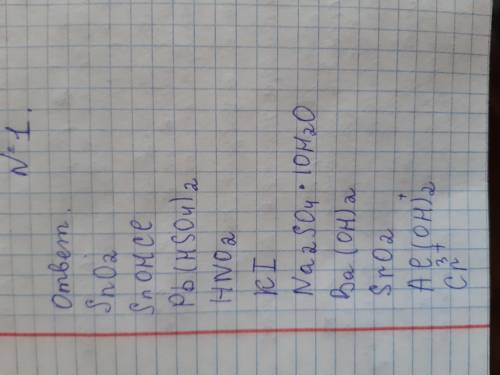 №1.
Ответ.
SnO2
SnOHCl
Pb(HSO4)2
HNO2
KI
Na2SO4 · 10H2O
Ba(OH)2
SrO2
Al(OH)2+
Cr3+